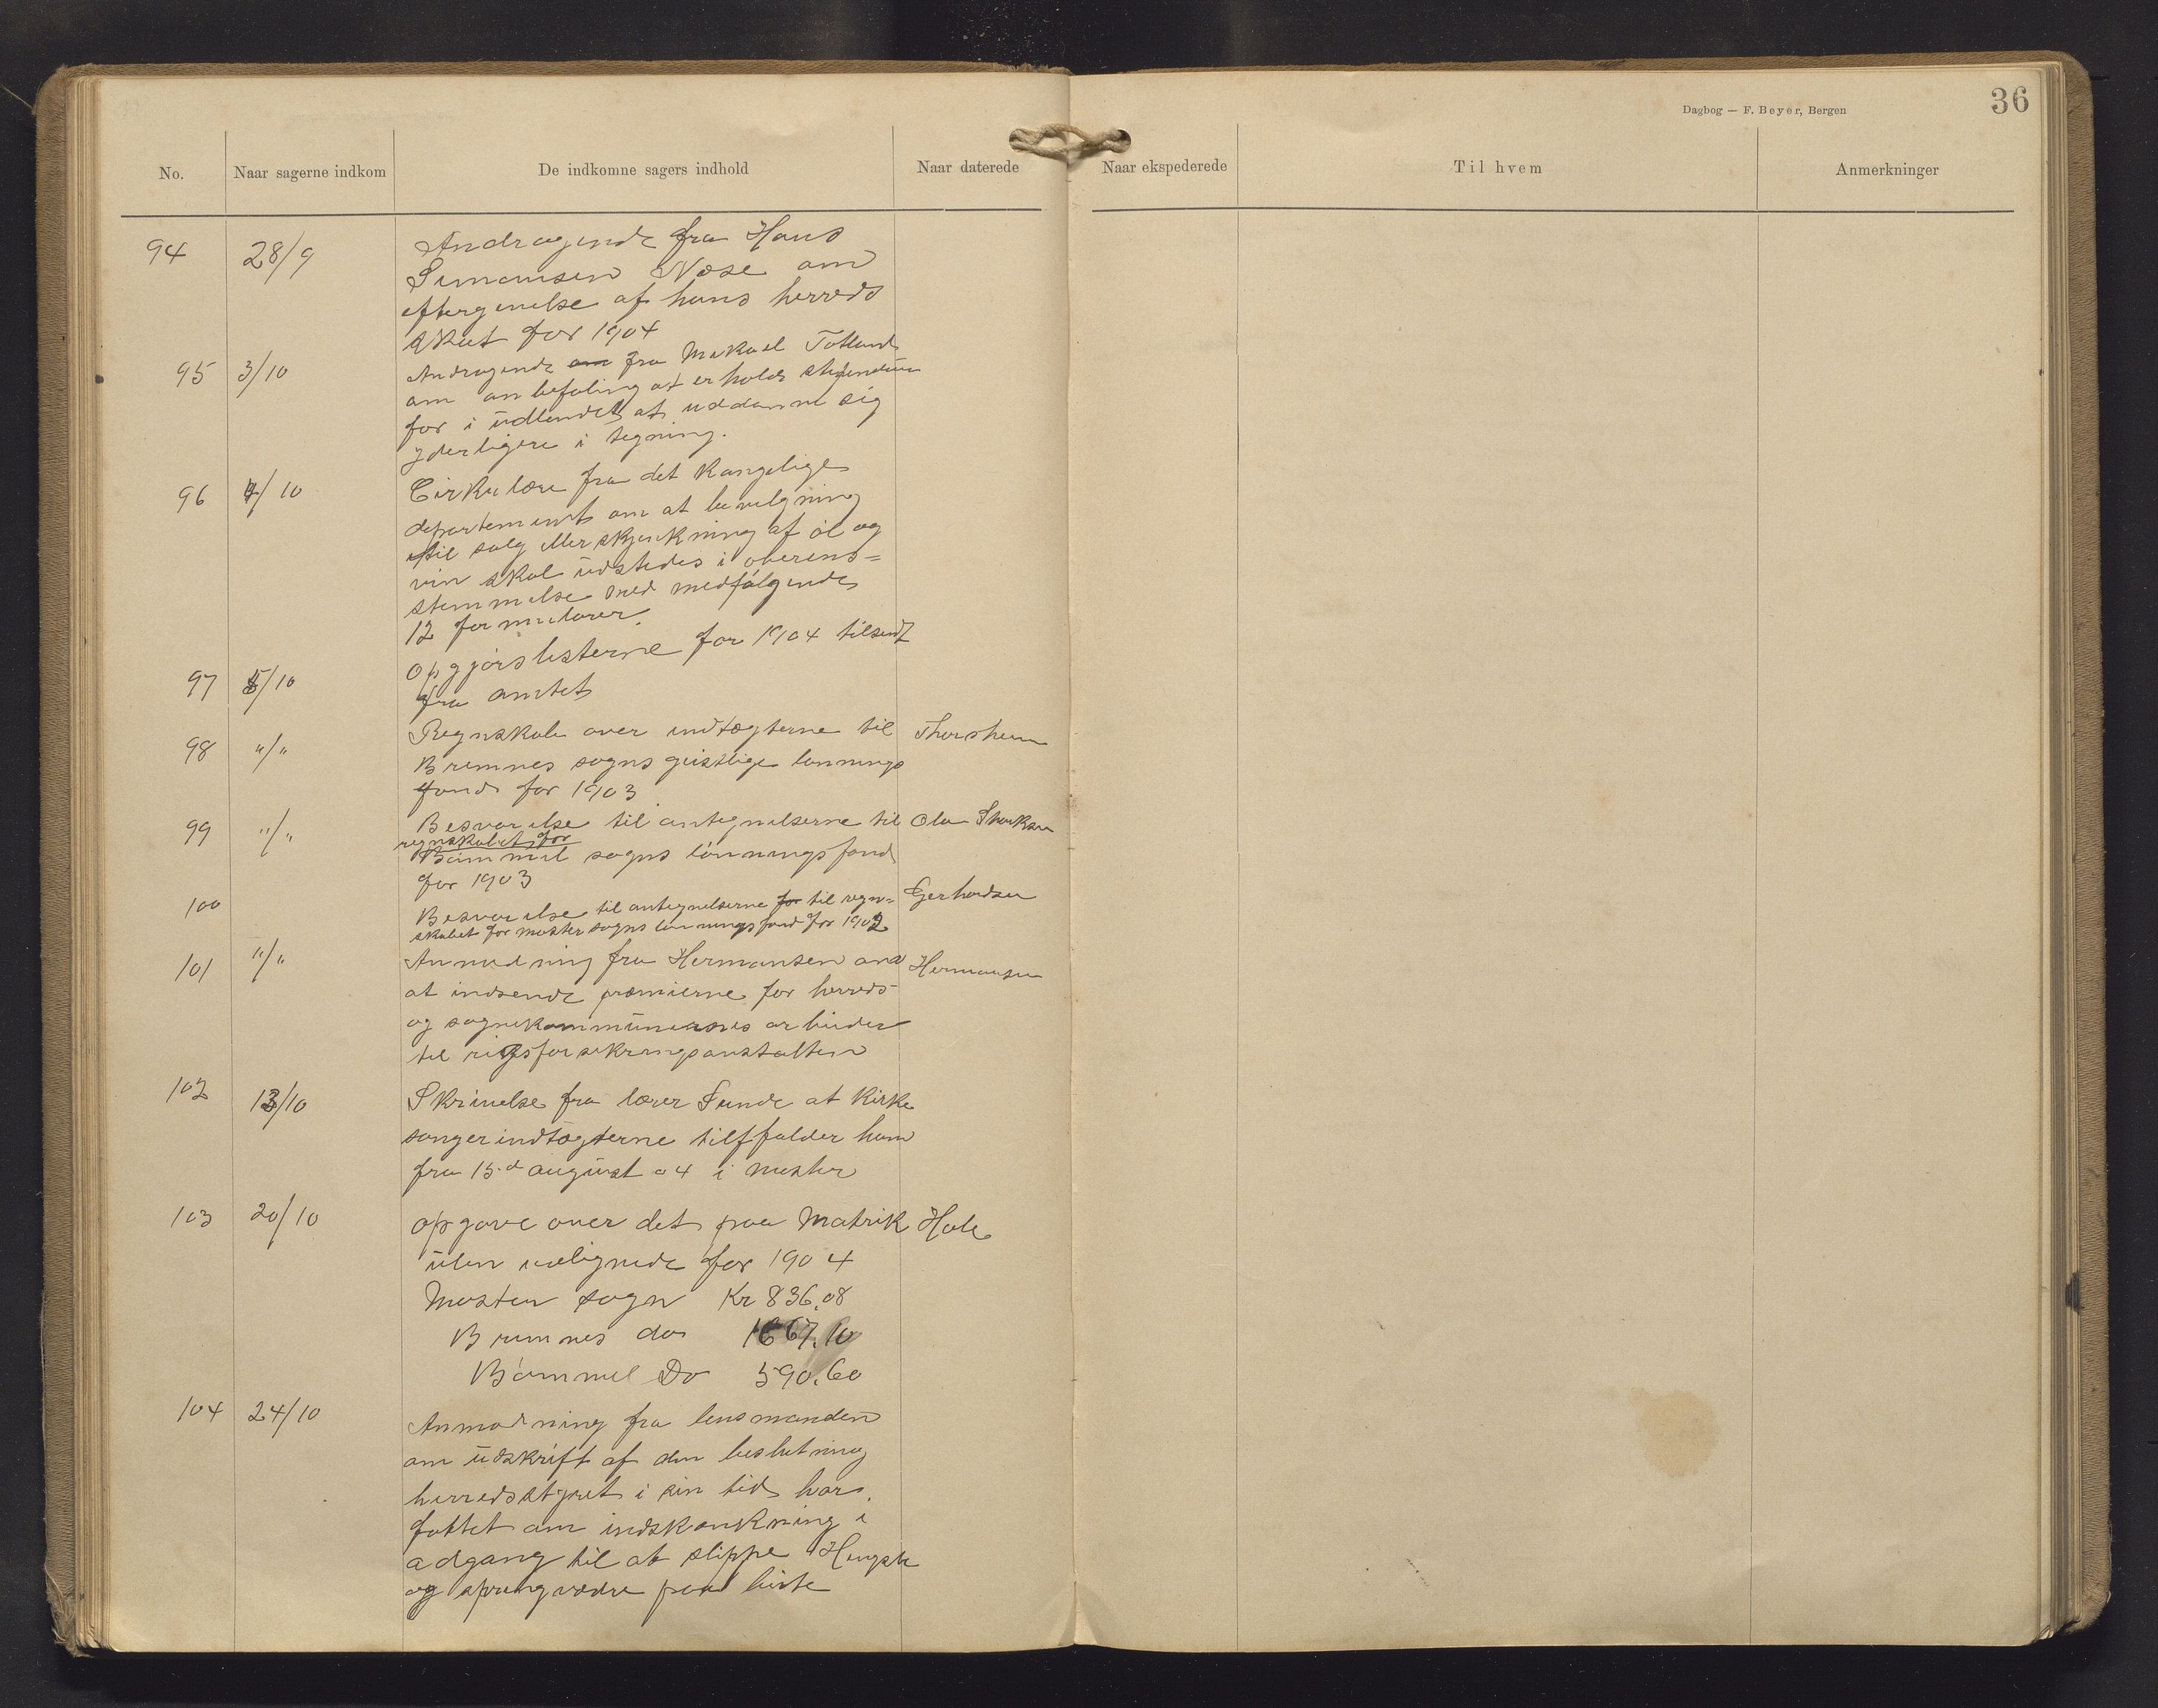 Dagbog — F. Beyer, Bergen
36
No.
Naar sagerne indkom
De indkomne sagers indhold
Naar daterede
Naar ekspederede
Til hvem
Anmerkninger
94 28/9 Andragende fra Hans
Simonsen Næse om
eftergivelse af hans herreds
skat for 1904
95 3/10 Andragende om fra Mikael Totland
om anbefaling at erholde stipendium
for i üdlandet at uddanne sig
yderligere i tegning.
96 4/10 Cirkulære fra det Kongelige
departement om at bevilgning
til salg eller skjenkning af øl og
vin skal üdstedes i overens=
stemmelse med medfølgende
12 formularer.
97 5/10 Opgjørslisterne for 1904 tilsendt
fra amtet
98 "/" Regnskab over indtægterne til Thorsheim
Bremnes sogns geistlige lønnings
fond for 1903
99 "/" Besvarelse til antegnelserne til Ola
regnskabet for
Bømmel sogns lønningsfond
for 1903
100 Besvarelse til antegnelserne for til regn= Gerhardsen
skabet for moster sogns lønningsfond for 1902
101 "/" Anmodning fra Hermansen om Hermansen
at indsende præmierne for herreds-
og sognekommünernes arbeider
til rigsforsikringsanstalten
102 13/10 Skrivelse fra lærer Sunde at Kirke
sangerindtægterne tilffalder ham
fra 15d augüst 04 i moster
103 20/10 opgave over det paa Matrik Hole
ülen udlignede for 1904
Moster sogn Kr 836.08
Bremnes do 1667.10
Bømmel Do 590.60
104 24/10 Anmodning fra lensmanden
om üdskrift af den beslutning
herredsstyret i sin tid har
fattet om indskrænkning i
adgang til at slippe Hingste
og springvædre paa beite